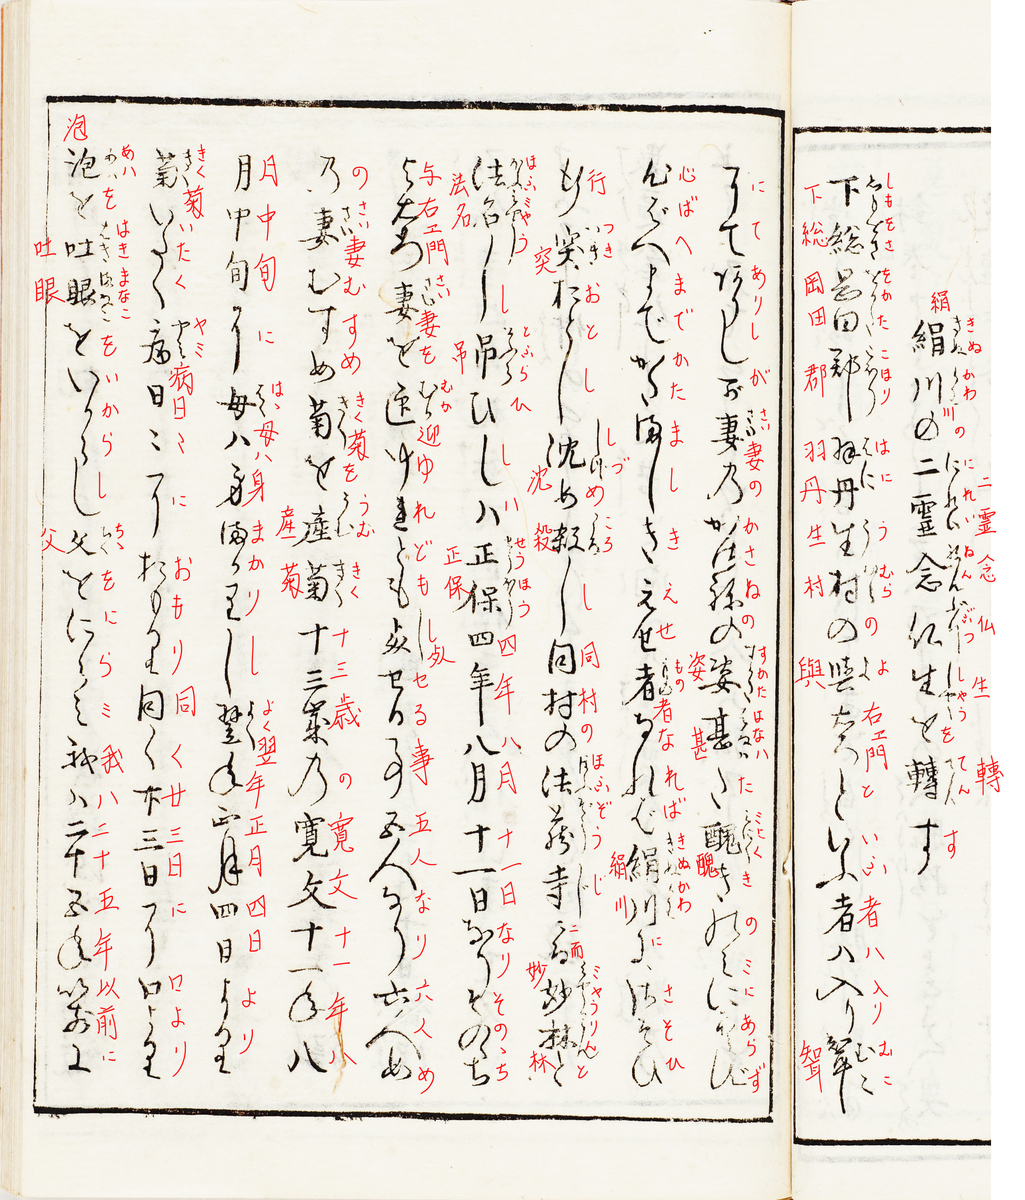 絹川の二霊念仏生を轉す
下総岡田郡羽丹生村の與右衛門といふ者ハ入り聟
にてありしが妻のかさねの姿甚た醜きのミにあらず
心ばへまでかたましきえせ者なれば絹川にさそひ
行突おとし沈め殺し同村の法蔵寺にて妙林と
法名し吊ひしハ正保四年八月十一日なりそのゝち
与右衛門妻を迎ゆれどもし㪽セる事五人なり六人め
の妻むすめ菊を産菊十三歳の寛文十一年八
月中旬に母ハ身まかりし翌年正月四日より
菊いたく病日々におもり同く廿三日に口より
泡を吐眼をいからし父をにらミ我ハ二十五年以前に